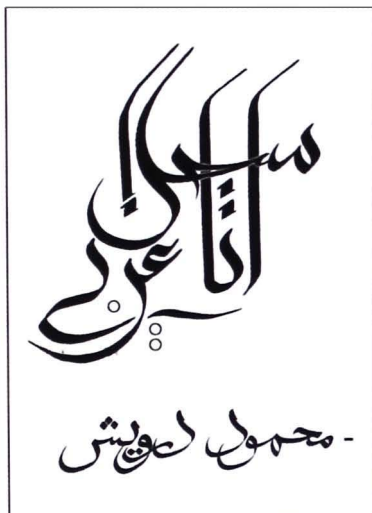 سجل!
انا
عربي
- محمود درويش